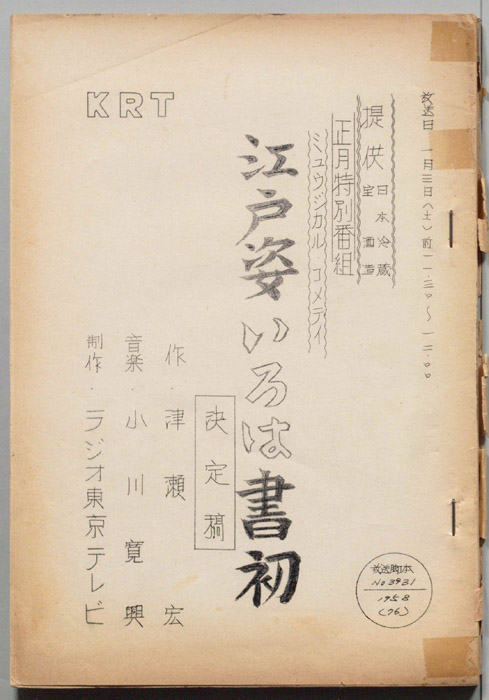 放送日 一月三日(土)前一一・三〇〜一二・〇〇
提供 日本冷蔵
宝酒造
正月特別番組
ミュウジカル コメディ
江戸姿いろは書初
決定稿
作・津瀬 宏
音楽・小川寛興
制作・ラジオ東京テレビ
KRT
放送脚本
No 3931
1958
(76)